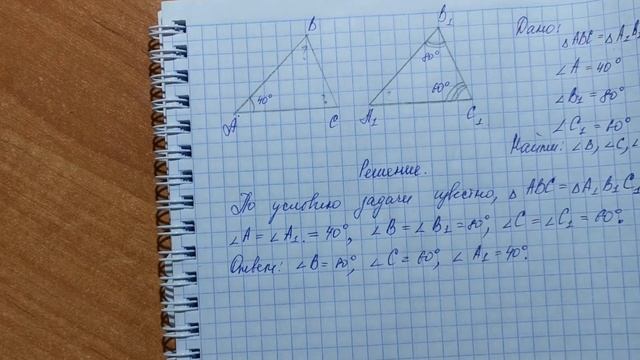 B
?
40°
?
A
C
B₁
80°
60°
A₁
C₁
Дано:
△ABC = △A₁B₁
∠A = 40°
∠B₁ = 80°
∠C₁ = 60°
Найти: ∠B, ∠C, ∠
Решение.
По условию задачи известно, △ABC = △A₁B₁C₁
∠A = ∠A₁ = 40°, ∠B = ∠B₁ = 80°, ∠C = ∠C₁ = 60°.
Ответ: ∠B = 80°, ∠C = 60°, ∠A₁ = 40°.